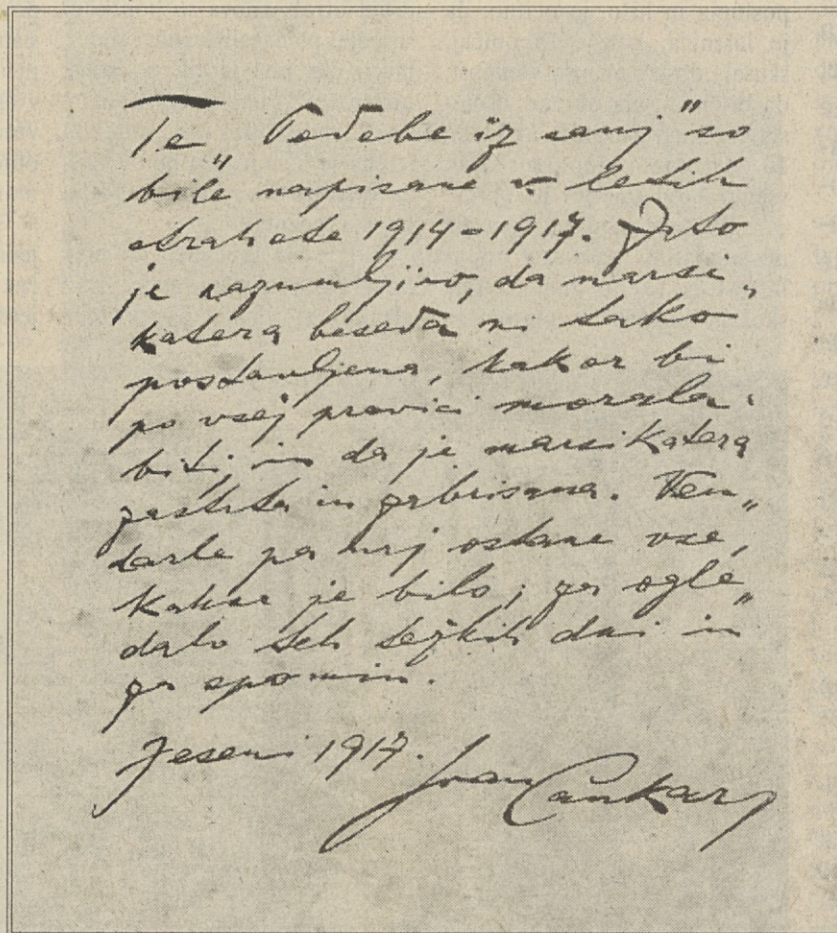 Te „Podobe iz sanj" so
bile napisane v letih
strahote 1914-1917. Zato
je razumljivo, da marsi„
katera beseda ni tako
postavljena, kakor bi
po vsej pravici morala
biti, in da je marsikatera
zastrta in zabrisana. Ven„
darle pa naj ostane vse,
kakor je bilo; za ogle„
dalo teh težkih dni in
za spomin.
Jeseni 1917.
Ivan Cankar